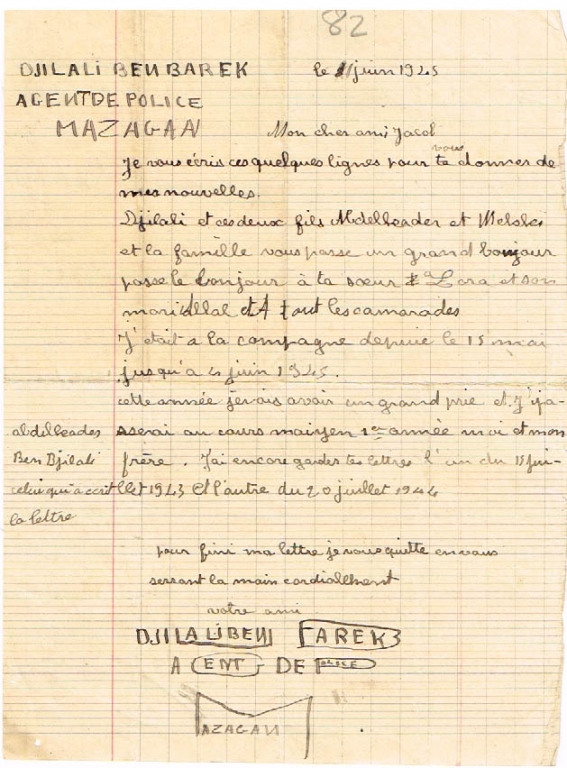 82
DJILALI BEN BAREK
le 11 juin 1945
AGENT DE POLICE
MAZAGAN
Mon cher ami Jacob
vous
Je vous écris ces quelques lignes pour te donner de
mes nouvelles.
Djilali et ces deux fils Abdelkader et
et la famille vous passe un grand bonjour
passe le bonjour à ta sœur Lora et son
mari Allal et A tout les camarades
J'était a la compagne depuie le 15 mai
jusqu'a 4 juin 1945.
cette année je vais avoir un grand prie et J'
au cours moiyen 1er année moi et mon
frère. J'ai encore garder tes lettres l'un du 15 juil-
let 1943 et l'autre du 20 juillet 1944
abdelkader
Ben Djilali
celui qui a ecrit
la lettre
pour fini ma lettre je vous quitte en vous
serrant la main cordiallment
votre ami
DJILALI BEN BAREK
AGENT DE POLICE
MAZAGAN